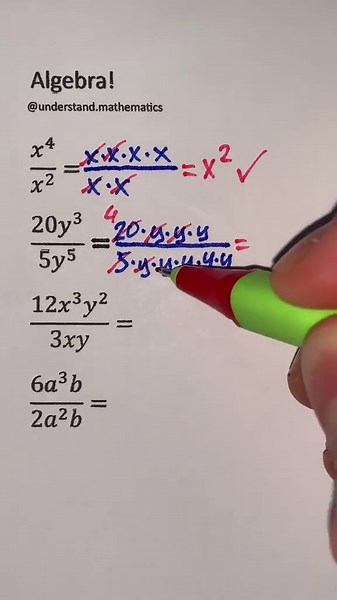 Algebra!
@understand.mathematics
x⁴/x² = x·x·x·x/x·x = x² ✓
20y³/5y⁵ = 4 20·y·y·y/5·y·y·y·y·y =
12x³y²/3xy =
6a³b/2a²b =